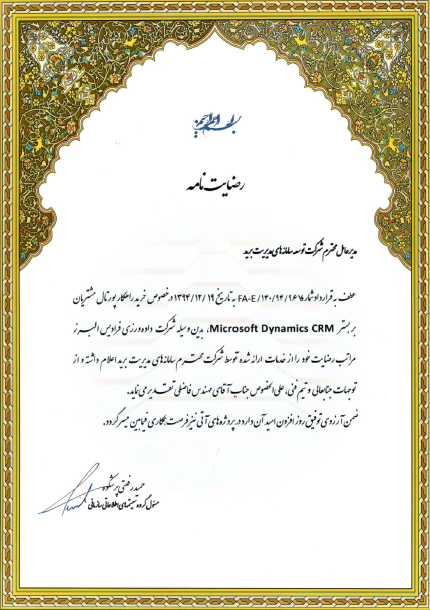 بسم الله الرحمن الرحیم
رضایت نامه
مدیرعامل محترم شرکت توسعه سامانه‌های مدیریت برید
عطف به قرارداد شماره FA-E/140/94/9617 به تاریخ 1394/12/19 درخصوص خرید راهکار پورتال مشتریان
بر بستر Microsoft Dynamics CRM، بدین وسیله شرکت داده‌ورزی فرادیس البرز
مراتب رضایت خود را از خدمات ارائه شده توسط شرکت محترم سامانه‌های مدیریت برید اعلام داشته و از
توجهات جنابعالی و تیم فنی، علی الخصوص جناب آقای مهندس فاضلی تقدیر می‌نماید.
ضمن آرزوی توفیق روز افزون امید آن دارد در پروژه‌های آتی نیز فرصت همکاری فیمابین میسر گردد.
حمید رفعتی پرشکوه
مسئول گروه سیستمهای اطلاعاتی سازمانی